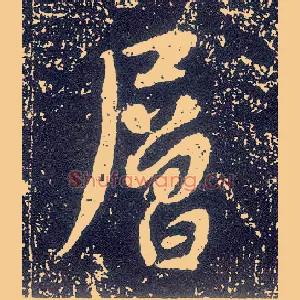 層
Shufawang.cn